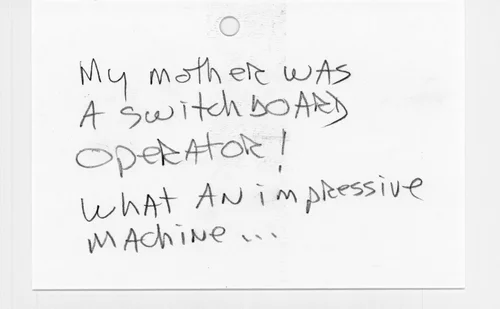 My mother was
A switchboard
operator!
What an impressive
machine...